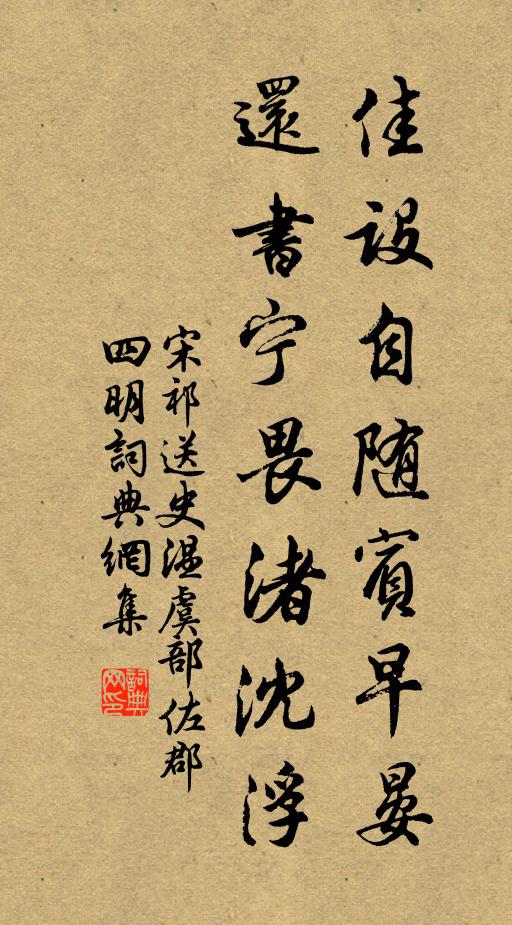 佳設自随賓早晏
還書宁畏渚沈浮
宋祁送史温虞部佐郡
四明詞典網集
詞典
网印